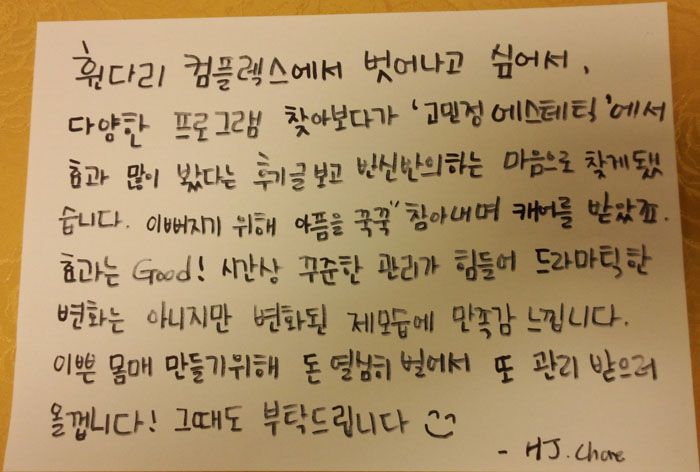 휜다리 컴플렉스에서 벗어나고 싶어서,
다양한 프로그램 찾아보다가 '고민정 에스테틱'에서
효과 많이 봤다는 후기글보고 반신반의하는 마음으로 찾게됐
습니다. 이뻐지기 위해 아픔을 꾹꾹" 참아내며 캐어를 받았죠.
효과는 Good! 시간상 꾸준한 관리가 힘들어 드라마틱한
변화는 아니지만 변화된 제모습에 만족감 느낍니다.
이쁜 몸매 만들기위해 돈 열심히 벌어서 또 관리 받으러
올껍니다! 그때도 부탁드립니다
- HJ.